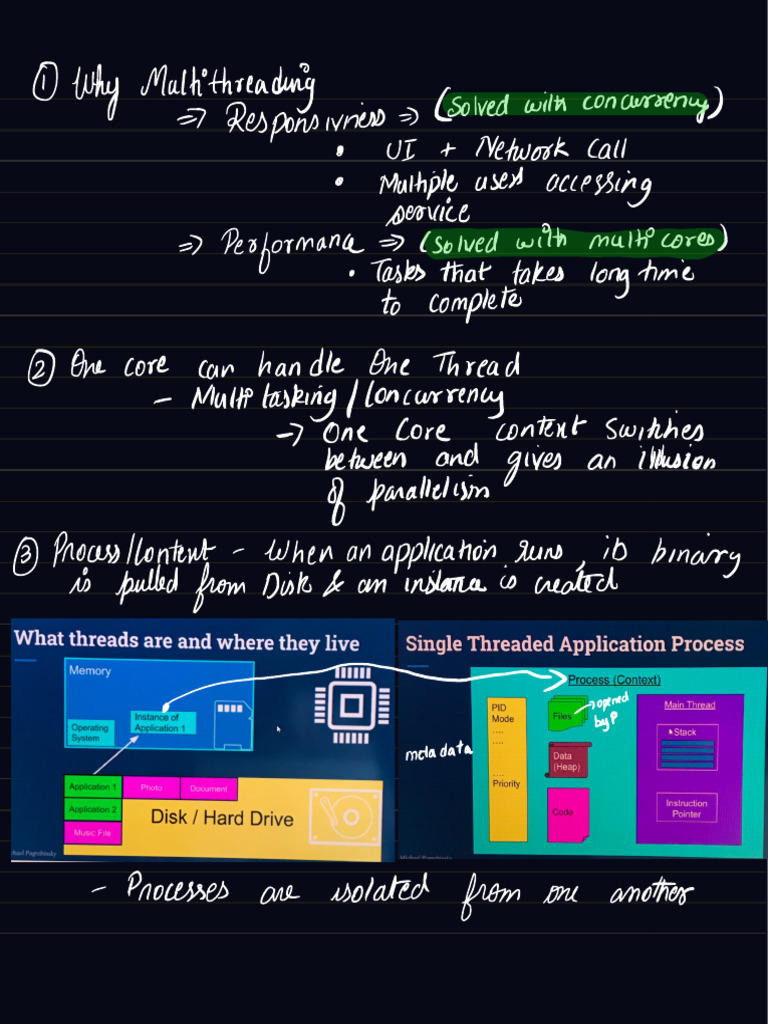 ① Why Multithreading
⇒ Responsivness ⇒ (solved with concurrency)
• UI + Network call
• Multiple users accessing
service
⇒ Performance ⇒ (solved with multi cores)
• Tasks that takes long time
to complete
② One core can handle One Thread
- Multi tasking / Concurrency
→ One Core context switches
between and gives an illusion
of parallelism
③ Process/Context - When an application runs, its binary
is pulled from Disk & an instance is created
What threads are and where they live
Memory
Operating
System
Instance of
Application 1
Application 1
Photo
Document
Application 2
Music File
Disk / Hard Drive
Single Threaded Application Process
Process (Context)
meta data
PID
Mode
....
....
....
Priority
Files
opened
by P
Data
(Heap)
Code
Main Thread
Stack
Instruction
Pointer
- Processes are isolated from one another